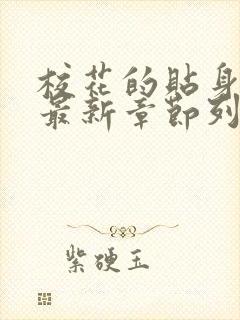 校花的贴身
最新章节列
紫硬玉